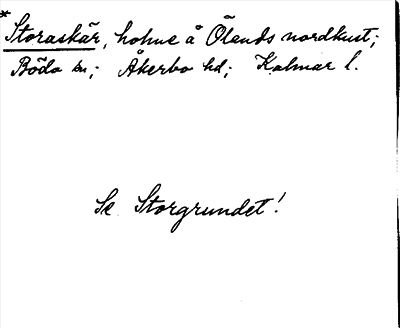 *
Storaskär, holme å Ölands nordkust;
Böda sn; Åkerbo hd; Kalmar l.
Se Storgrundet!